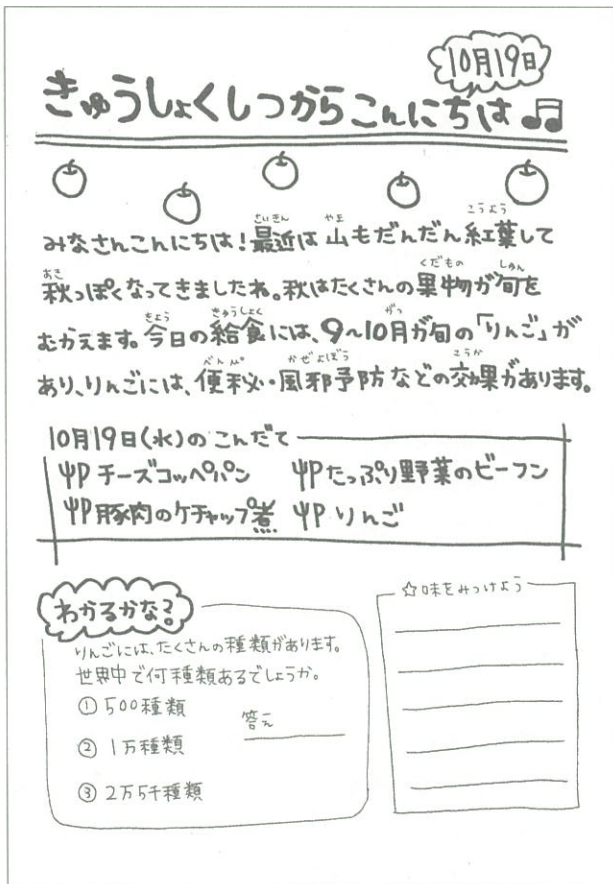 10月19日
きゅうしょくしつからこんにちは♫
みなさんこんにちは！最近は山もだんだん紅葉して
秋っぽくなってきましたね。秋はたくさんの果物が旬を
むかえます。今日の給食には、9～10月が旬の「りんご」が
あり、りんごには、便秘・風邪予防などの効果があります。
10月19日(水)のこんだて
チーズコッペパン たっぷり野菜のビーフン
豚肉のケチャップ煮 りんご
わかるかな？
りんごには、たくさんの種類があります。
世界中で何種類あるでしょうか。
① 500種類
答え
② 1万種類
③ 2万5千種類
☆味をみつけよう